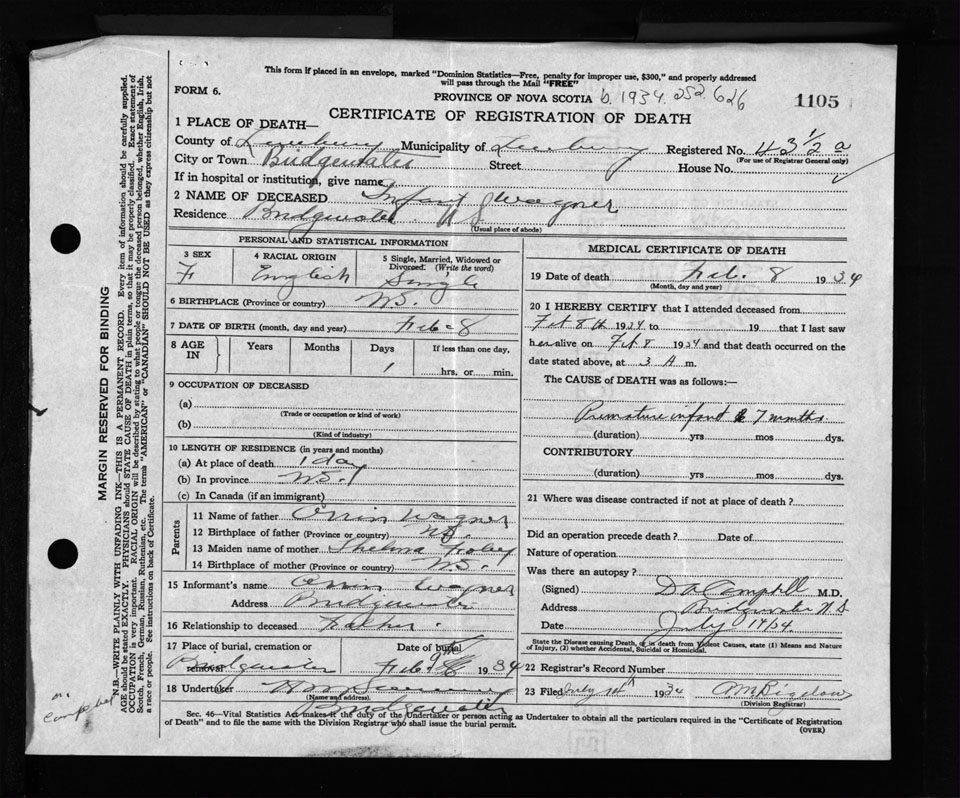 This form if placed in an envelope, marked "Dominion Statistics—Free, penalty for improper use, $300," and properly addressed
will pass through the Mail "FREE"
FORM 6.
PROVINCE OF NOVA SCOTIA b. 1934. 252 626
1105
CERTIFICATE OF REGISTRATION OF DEATH
1 PLACE OF DEATH—
County of Lunenburg Municipality of Lunenburg Registered No. 43 1/2 a
(For use of Registrar General only)
City or Town Bridgewater Street House No.
If in hospital or institution, give name
2 NAME OF DECEASED Infant Wagner
Residence Bridgewater
(Usual place of abode)
PERSONAL AND STATISTICAL INFORMATION
3 SEX 4 RACIAL ORIGIN 5 Single, Married, Widowed or Divorced. (Write the word)
F English Single
6 BIRTHPLACE (Province or country) N.S.
7 DATE OF BIRTH (month, day and year) Feb - 8
8 AGE IN Years Months Days If less than one day,
1 hrs. or min.
9 OCCUPATION OF DECEASED
(a)
(Trade or occupation or kind of work)
(b)
(Kind of industry)
10 LENGTH OF RESIDENCE (in years and months)
(a) At place of death 1 day
(b) In province N.S.
(c) In Canada (if an immigrant)
Parents
11 Name of father Orrin Wagner
12 Birthplace of father (Province or country) N.S.
13 Maiden name of mother Thelma
14 Birthplace of mother (Province or country) N.S.
15 Informant's name Orrin Wagner
Address Bridgewater
16 Relationship to deceased Father
17 Place of burial, cremation or removal Date of burial
Bridgewater Feb 1934
18 Undertaker
(Name and address)
Bridgewater
MEDICAL CERTIFICATE OF DEATH
19 Date of death Feb. 8 1934
(Month, day and year)
20 I HEREBY CERTIFY that I attended deceased from
Feb 8th 1934 to 19 that I last saw
her alive on Feb 8 1934 and that death occurred on the
date stated above, at 3 A m.
The CAUSE of DEATH was as follows:—
Premature infant 7 months
(duration) yrs mos dys.
CONTRIBUTORY
(duration) yrs mos dys.
21 Where was disease contracted if not at place of death?
Did an operation precede death? Date of
Nature of operation
Was there an autopsy?
(Signed) D A Campbell M.D.
Address Bridgewater N S
Date July 14/34.
State the Disease causing Death, or in death from Violent Causes, state (1) Means and Nature
of Injury, (2) whether Accidental, Suicidal or Homicidal.
22 Registrar's Record Number
23 Filed July 1934 A M Bigelow
(Division Registrar)
Sec. 46—Vital Statistics Act makes it the duty of the Undertaker or person acting as Undertaker to obtain all the particulars required in the "Certificate of Registration
of Death" and to file the same with the Division Registrar who shall issue the burial permit.
(OVER)
MARGIN RESERVED FOR BINDING
N.B.—WRITE PLAINLY WITH UNFADING INK—THIS IS A PERMANENT RECORD. Every item of information should be carefully supplied.
AGE should be stated EXACTLY. PHYSICIANS should STATE CAUSE OF DEATH in plain terms, so that it may be properly classified. Exact statement of
OCCUPATION is very important. RACIAL ORIGIN will be described by stating to what people or tongue the deceased person belonged, whether English, Irish,
Scotch, French, German, Russian, Ruthenian, etc. The terms "AMERICAN" or "CANADIAN" SHOULD NOT BE USED as they express citizenship but not
a race or people. See instructions on back of Certificate.
Campbell